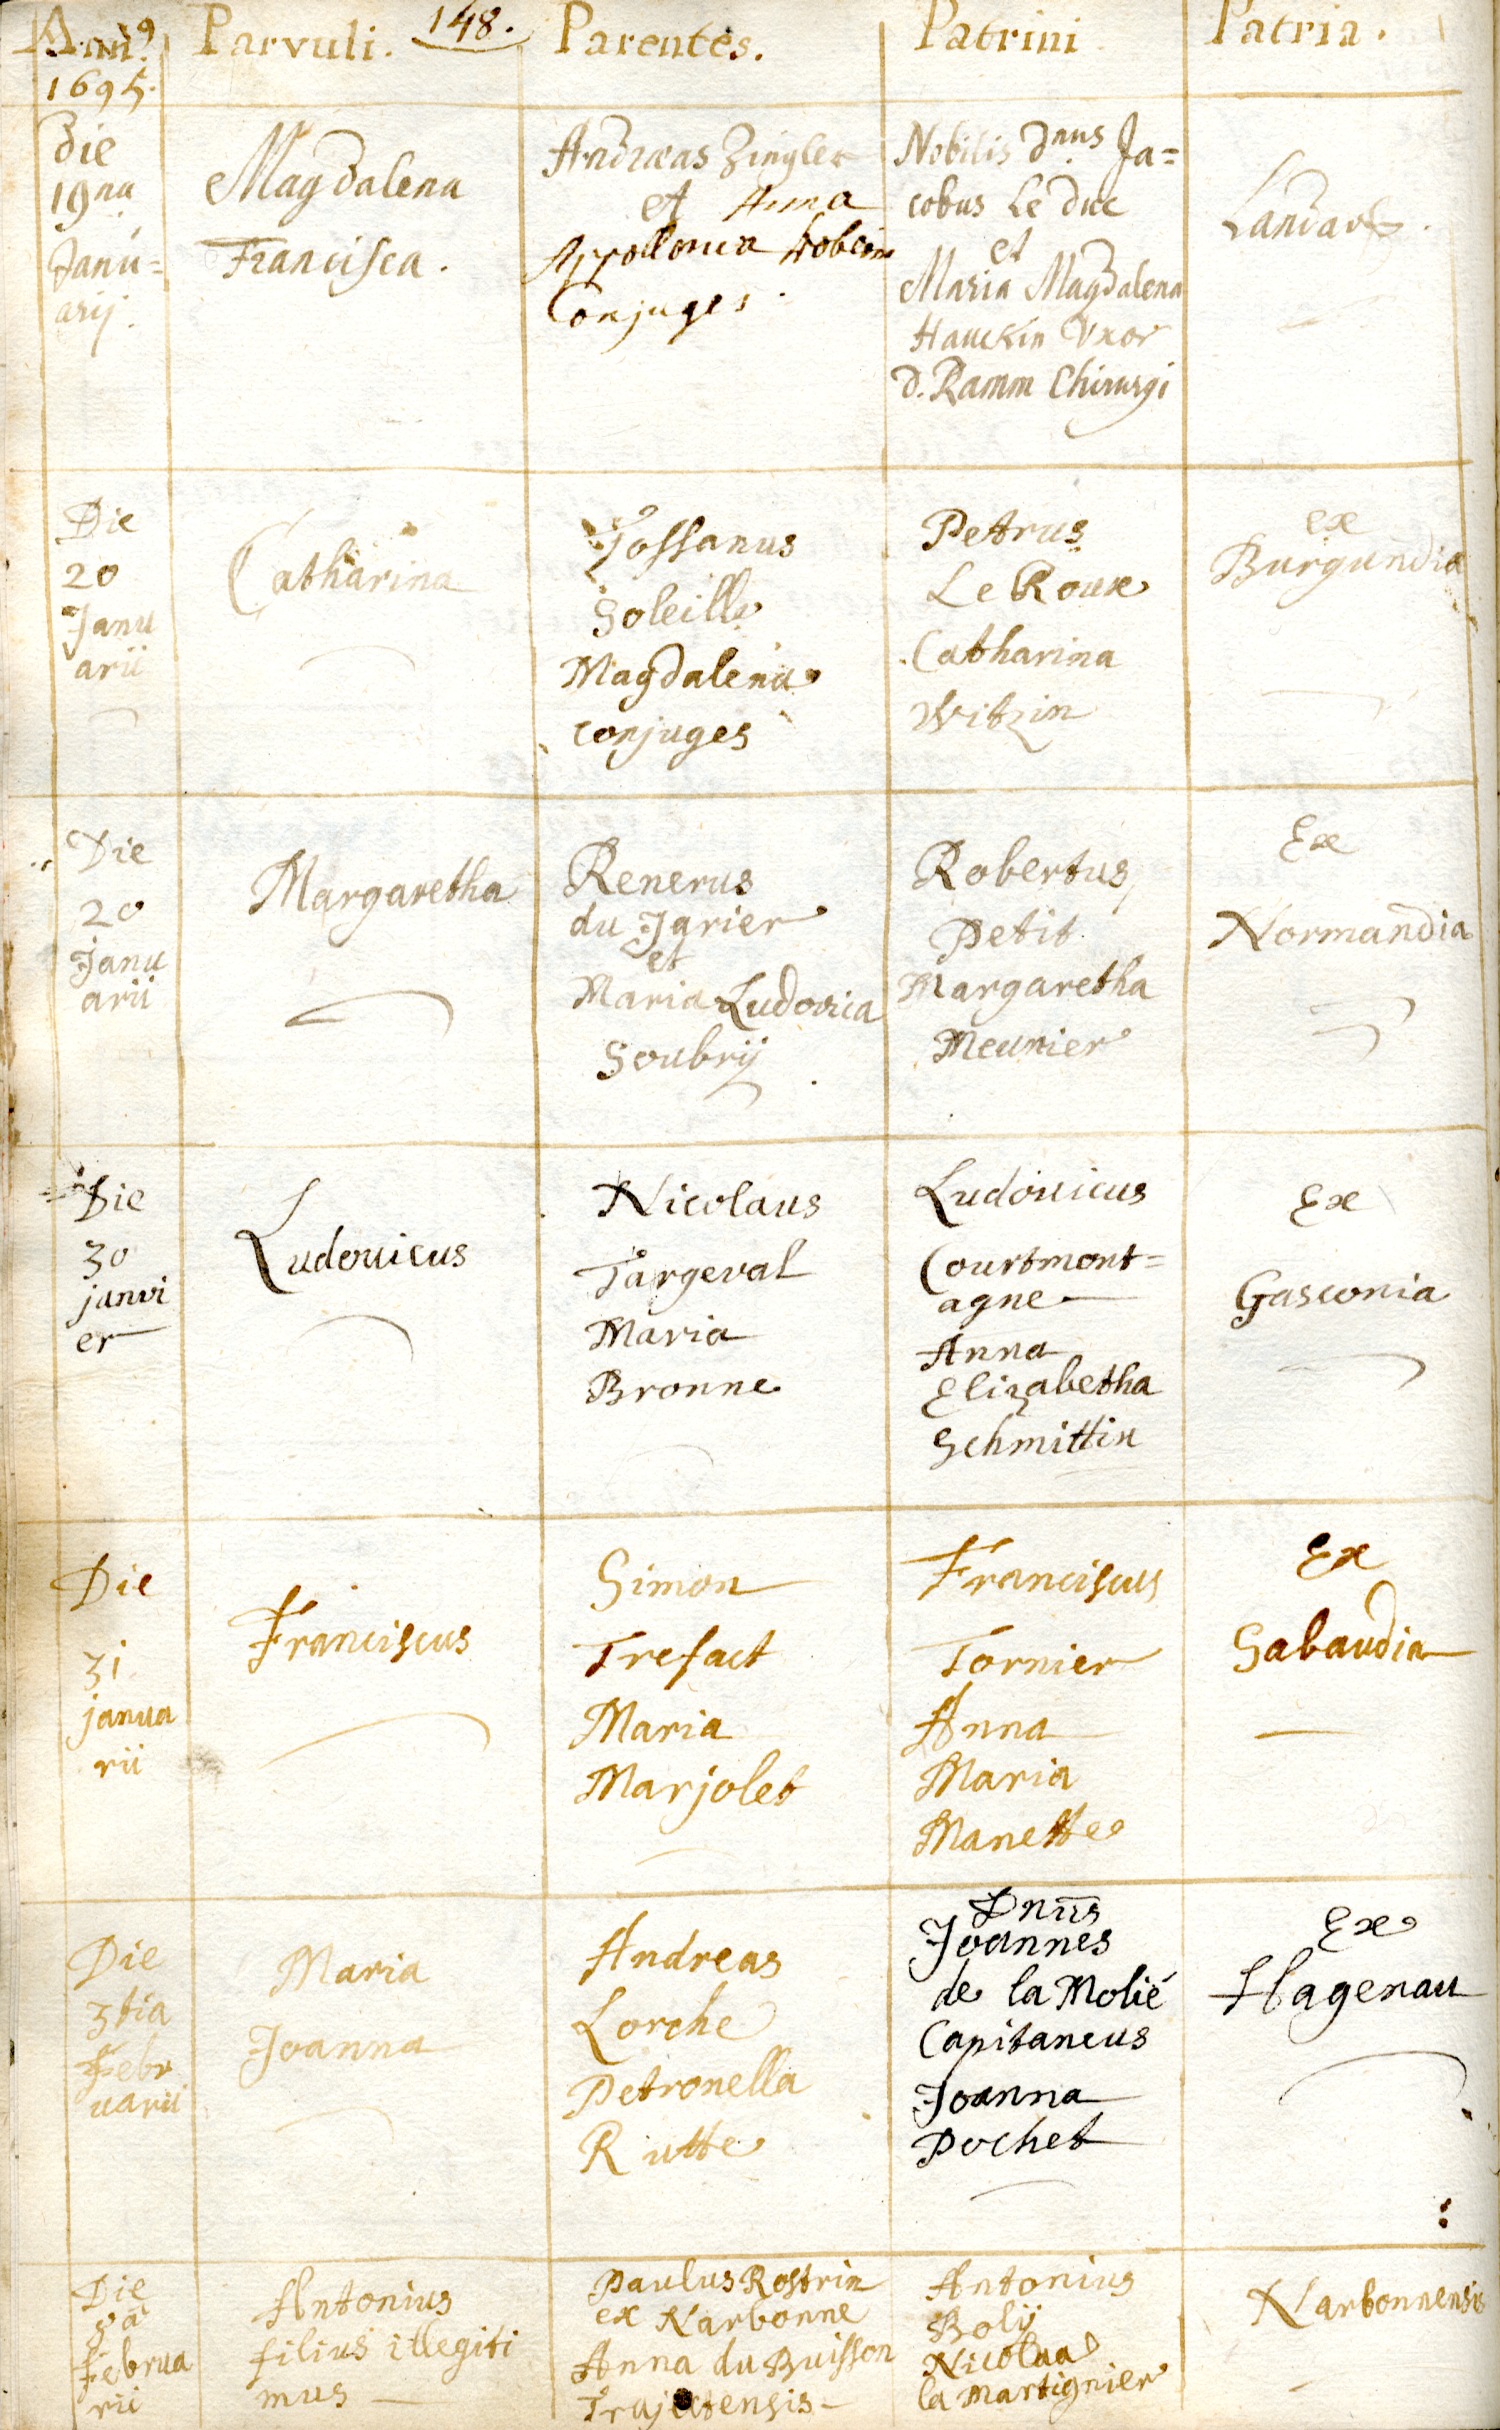 148.
Anni⁹ Parvuli. Parentes. Patrini Patria.
1695.
Die
19na
Janu=
arij.
Magdalena
Francisca.
Andreas Zingler
et Anna
Appollonia
Conjuges.
Nobilis Dnus Ja=
cobus Le Duc
et
Maria Magdalena
Hauckin Uxor
D. Ramm Chirurgi
Die
20
Janu
arii
Catharina
Jossanus
Soleille
Magdalena
conjuges
Petrus
Le Roux
Catharina
Witzin
ex
Burgundia
Die
20
Janu
arii
Margaretha
Renerus
du Jarier
et
Maria Ludovica
Soubrij
Robertus
Petit
Margaretha
Meunier
Ex
Normandia
Die
30
janvi
er
Ludovicus
Nicolaus
Targeval
Maria
Bronne
Ludovicus
Courtmont=
agne
Anna
Elizabetha
Schmittin
Ex
Gasconia
Die
31
janua
rii
Franciscus
Simon
Trefact
Maria
Marjolet
Franciscus
Tornier
Anna
Maria
Manette
Ex
Sabaudia
Die
3tia
Febr
uarii
Maria
Joanna
Andreas
Lorche
Petronella
Rutte
Dnus
Joannes
de la Molié
Capitaneus
Joanna
Pochet
Ex
Hagenau
Die
Februa
rii
Antonius
filius illegiti
mus
Paulus Rostrin
ex Narbonne
Anna du Buisson
Trajectensis
Antonius
Bolij
Nicolaa
la Martignier
Narbonnensis